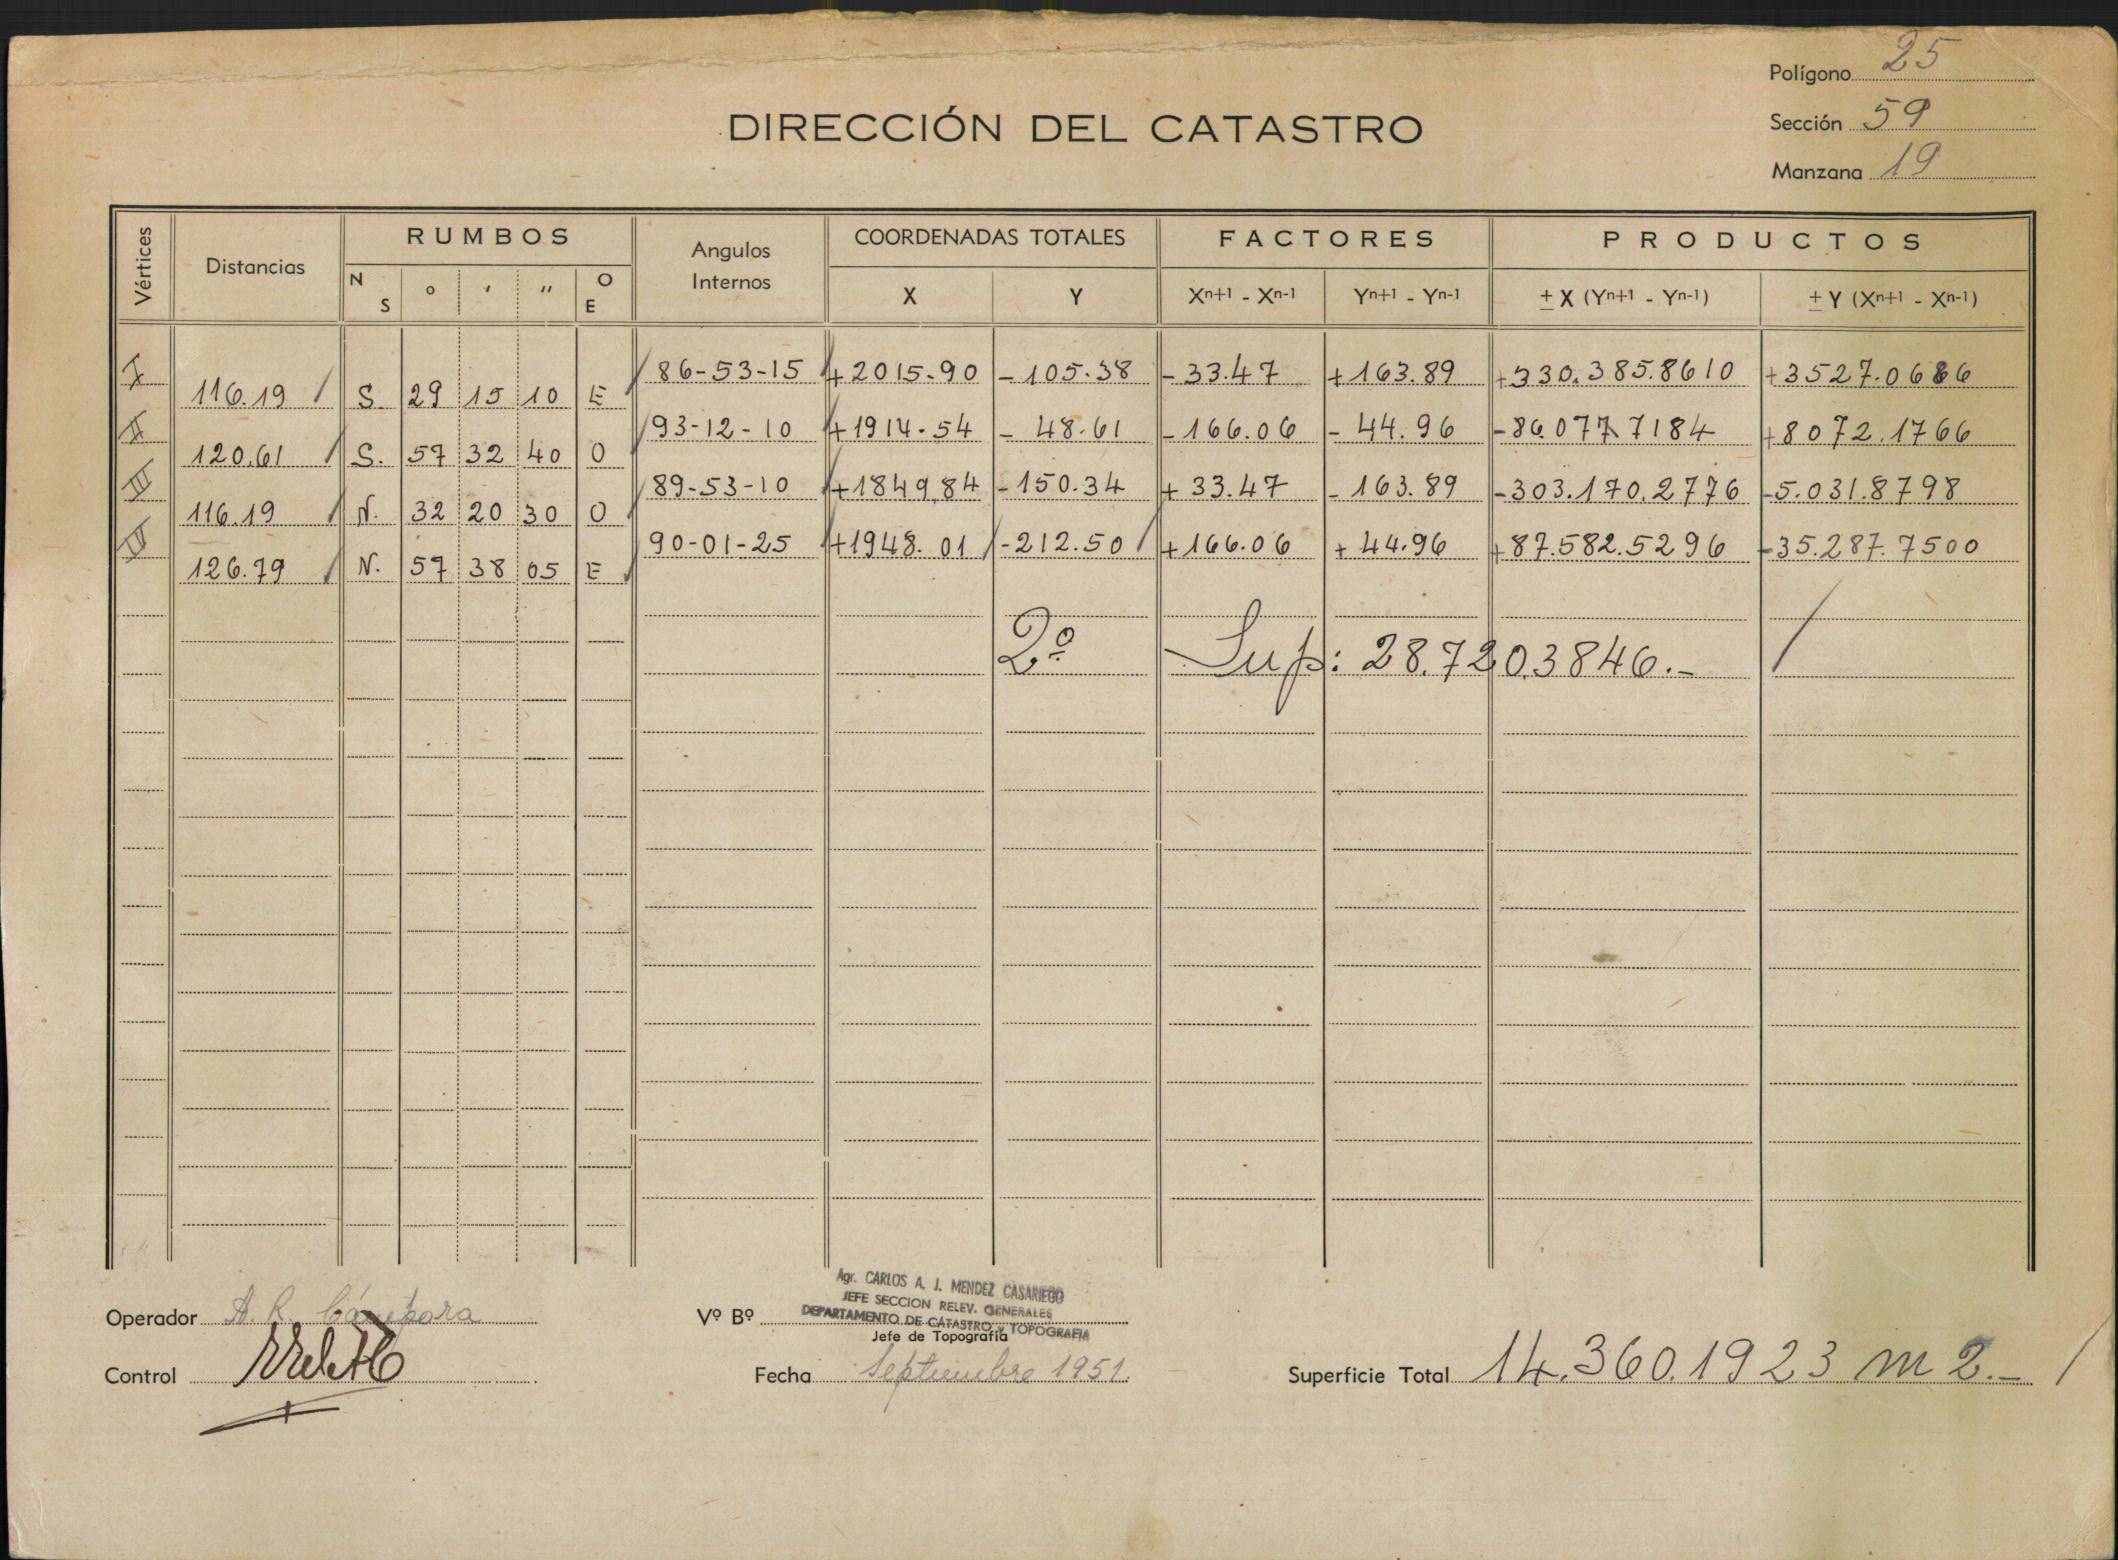 Polígono 25
DIRECCIÓN DEL CATASTRO
Sección 59
Manzana 19
Vértices Distancias RUMBOS Angulos Internos COORDENADAS TOTALES FACTORES PRODUCTOS
N S ° ' " O E X Y Xn+1 - Xn-1 Yn+1 - Yn-1 ± X (Yn+1 - Yn-1) ± Y (Xn+1 - Xn-1)
I 86-53-15 +2015.90 -105.38 -33.47 +163.89 +330.385.8610 +3527.0686
116.19 S 29 15 10 E
II 93-12-10 +1914.54 - 48.61 -166.06 - 44.96 -86.077.7184 +8072.1766
120.61 S. 57 32 40 O
III 89-53-10 +1849.84 -150.34 + 33.47 - 163.89 -303.170.2776 -5.031.8798
116.19 N. 32 20 30 O
IV 90-01-25 +1948.01 -212.50 +166.06 + 44.96 +87.582.5296 -35.287.7500
126.79 N. 57 38 05 E
2º Sup: 28.720.3846.-
Agr. CARLOS A. J. MENDEZ CASARIEGO
JEFE SECCION RELEV. GENERALES
DEPARTAMENTO DE CATASTRO y TOPOGRAFIA
Operador A. R. Cámpora Vº Bº
Jefe de Topografía
Control Fecha Septiembre 1951. Superficie Total 14.360.1923 m2.-